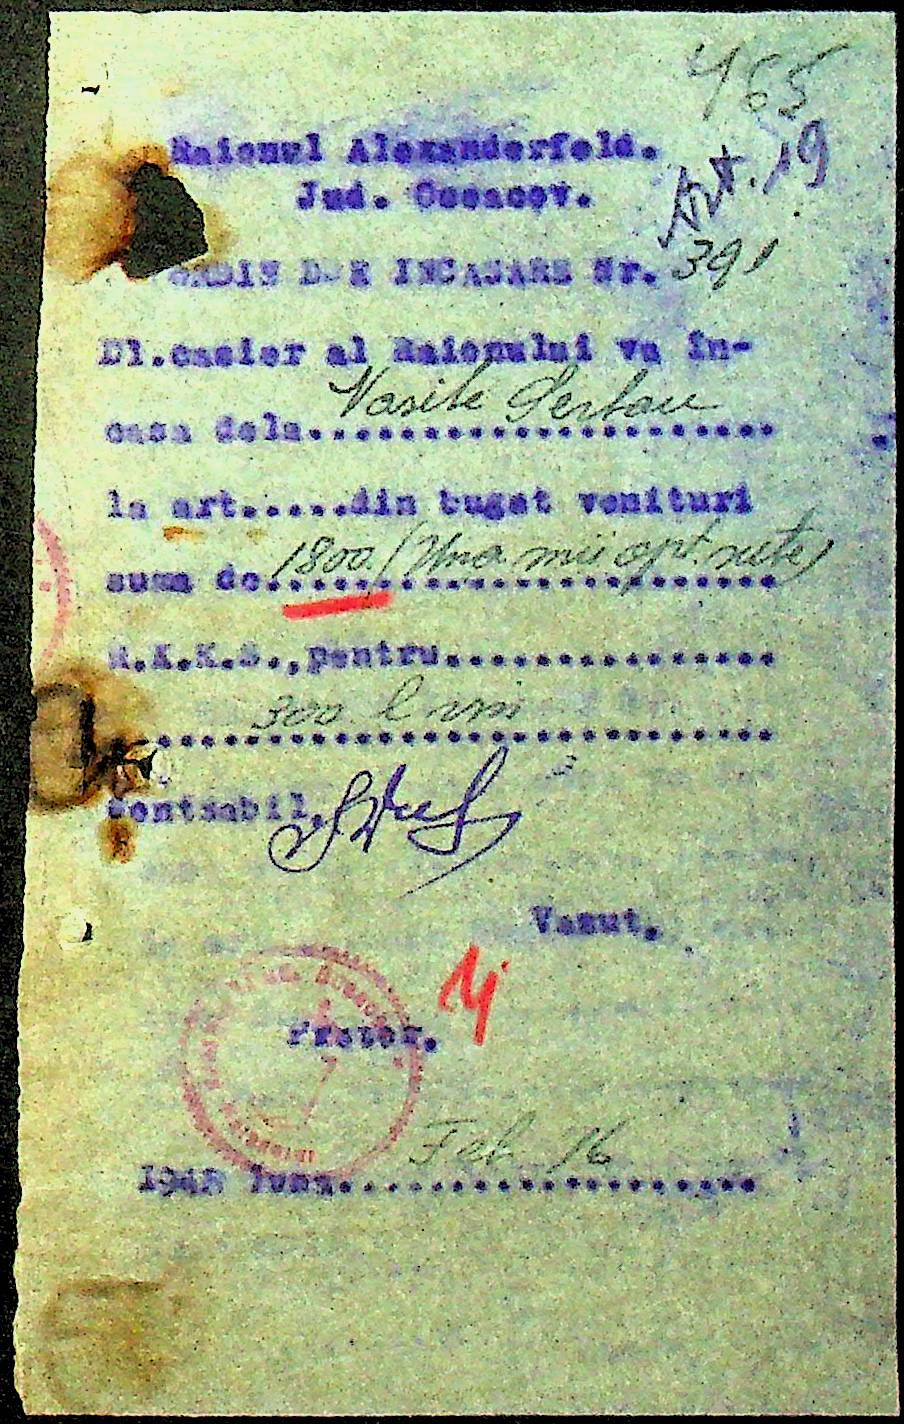 465
Raionul Alexanderfeld.
Jud. Oceacov.
Art. 19
ORDIN DE INCASARE Nr. 391
Dl.casier al Raionului va în-
casa dela Vasile Serban
la art.....din buget venituri
suma de 1800 (Una mii opt sute)
R.K.K.S.,pentru...............
300 l vin
Contsabil,
Vazut,
Pretor,
1942 luna Feb 16